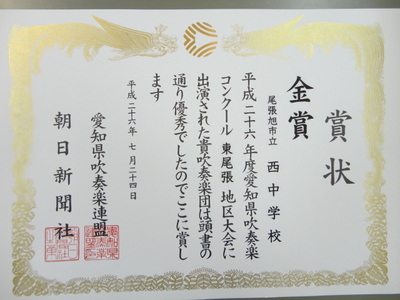 賞状
金賞
尾張旭市立 西中学校
平成二十六年度愛知県吹奏楽
コンクール 東尾張 地区大会に
出演された貴吹奏楽団は頭書の
通り優秀でしたのでここに賞し
ます
平成二十六年 七月二十四日
愛知県吹奏楽連盟
朝日新聞社